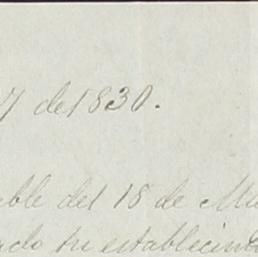 7 de 1830.
ble del 18 de
do su establecim